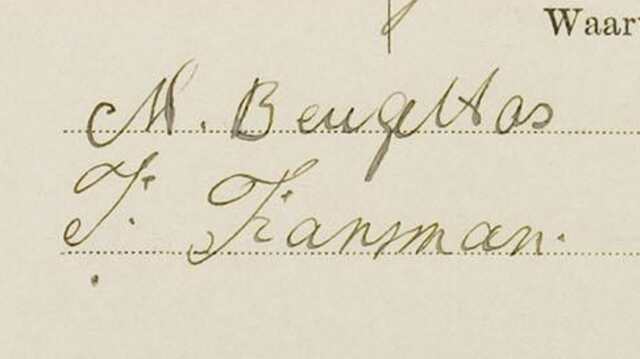 Waar
M. Beugeltas
F. Fransman.